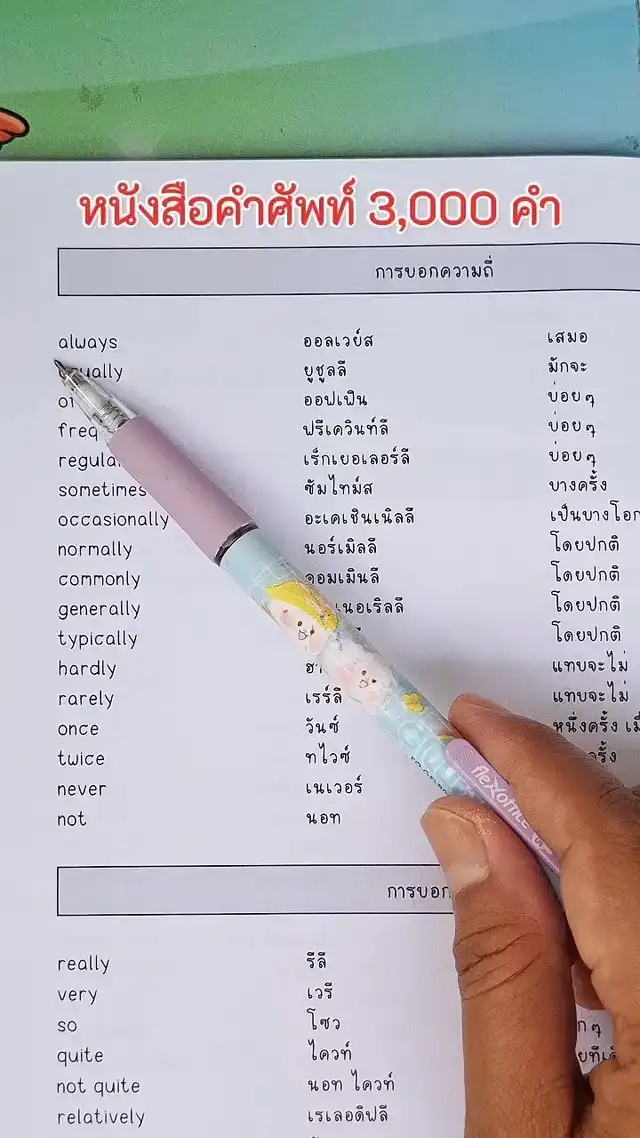 หนังสือคำศัพท์ 3,000 คำ
การบอกความถี่
always ออลเวย์ส เสมอ
ยูชูลลี มักจะ
ออฟเฟิน บ่อยๆ
ฟรีเควินท์ลี บ่อยๆ
เร็กเยอเลอร์ลี บ่อยๆ
sometimes ซัมไทม์ส บางครั้ง
occasionally อะเคเชินเนิลลี
normally นอร์เมิลลี โดยปกติ
commonly โดยปกติ
generally โดยปกติ
typically โดยปกติ
hardly แทบจะไม่
rarely เรร์ลี แทบจะไม่
once วันซ์ หนึ่งครั้ง
twice ทไวซ์
never เนเวอร์
not นอท
flexoffice
really รีลี
very เวรี
so โซว
quite ไควท์
not quite นอท ไควท์
relatively เรเลอดิฟลี